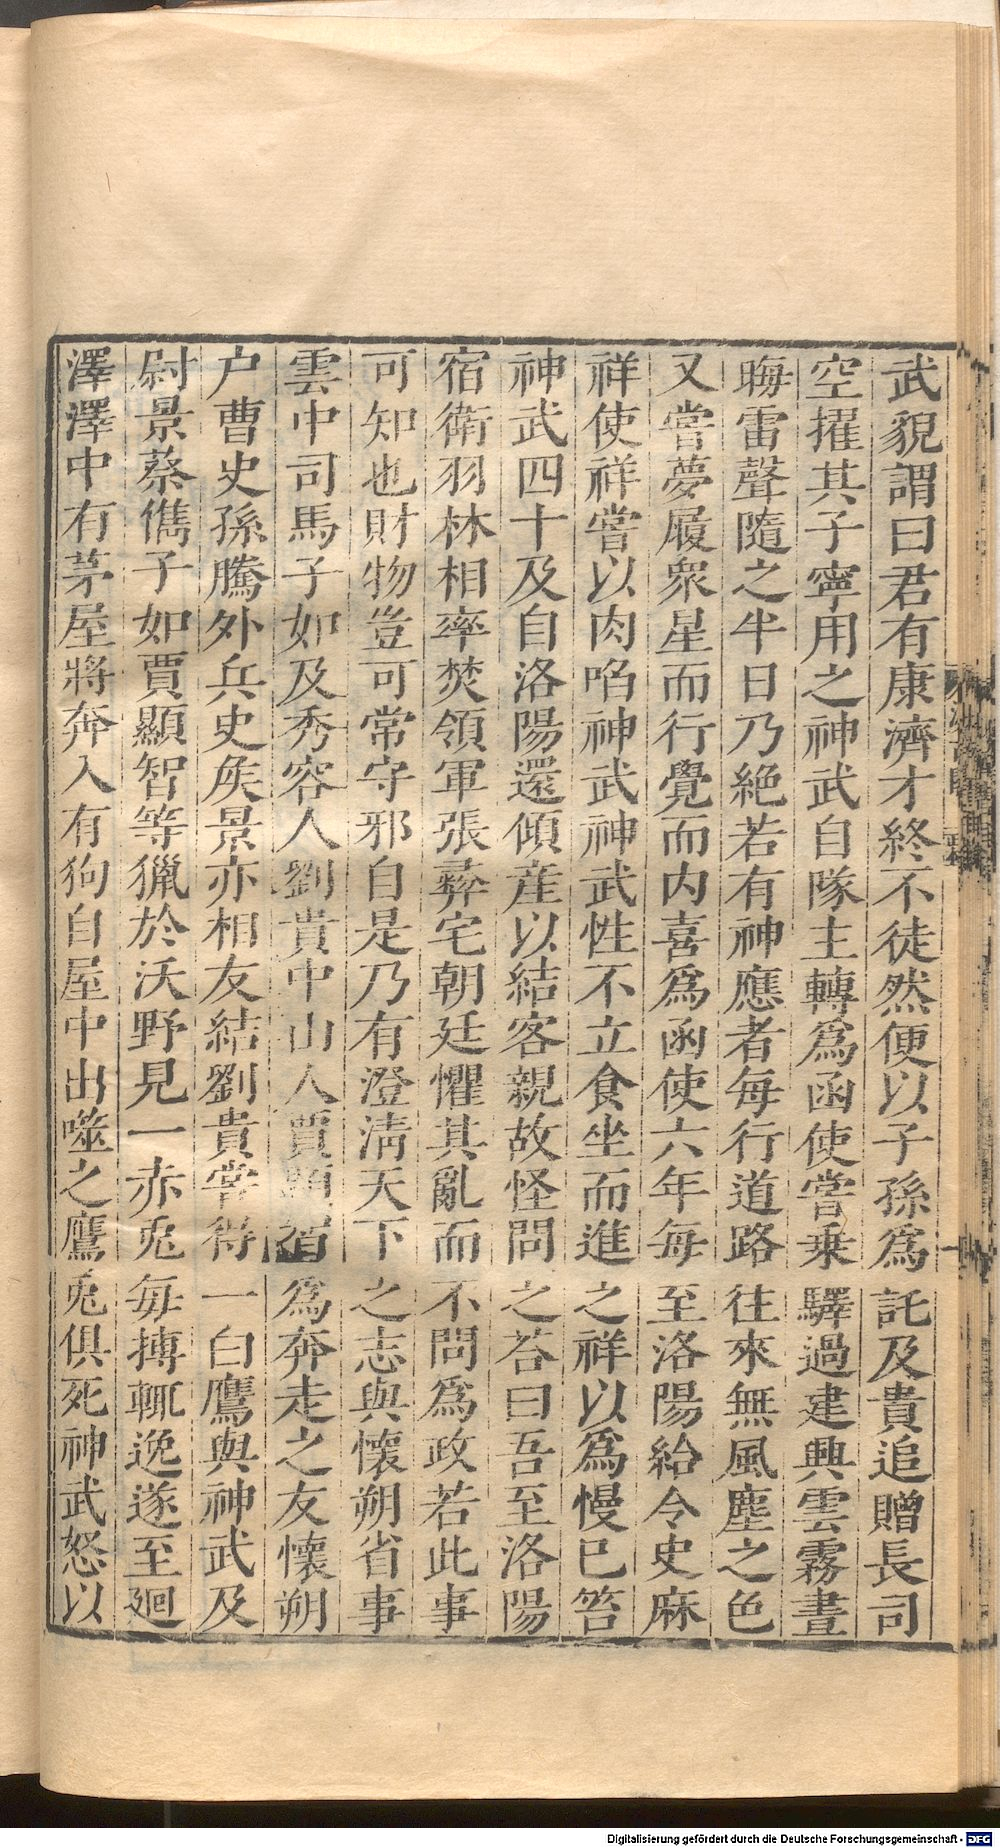 武貌謂曰君有康濟才終不徒然便以子孫爲託及貴追贈長司
空擢其子寧用之神武自隊主轉爲函使嘗乗驛過建興雲霧晝
晦雷聲隨之半日乃絶若有神應者每行道路往來無風塵之色
又嘗夢履衆星而行覺而内喜爲函使六年每至洛陽給令史麻
祥使祥嘗以肉啗神武神武性不立食坐而進之祥以爲慢已笞
神武四十及自洛陽還傾産以結客親故怪問之荅曰吾至洛陽
宿衛羽林相率焚領軍張彛宅朝廷懼其亂而不問爲政若此事
可知也財物豈可常守邪自是乃有澄清天下之志與懷朔省事
雲中司馬子如及秀容人劉貴中山人賈顯智爲奔走之友懷朔
户曹史孫騰外兵史矦景亦相友結劉貴嘗得一白鷹與神武及
尉景蔡儁子如賈顯智等獵於沃野見一赤兎每搏輒逸遂至迴
澤澤中有茅屋將奔入有狗自屋中出噬之鷹兎俱死神武怒以
Digitalisierung gefördert durch die Deutsche Forschungsgemeinschaft - DFG